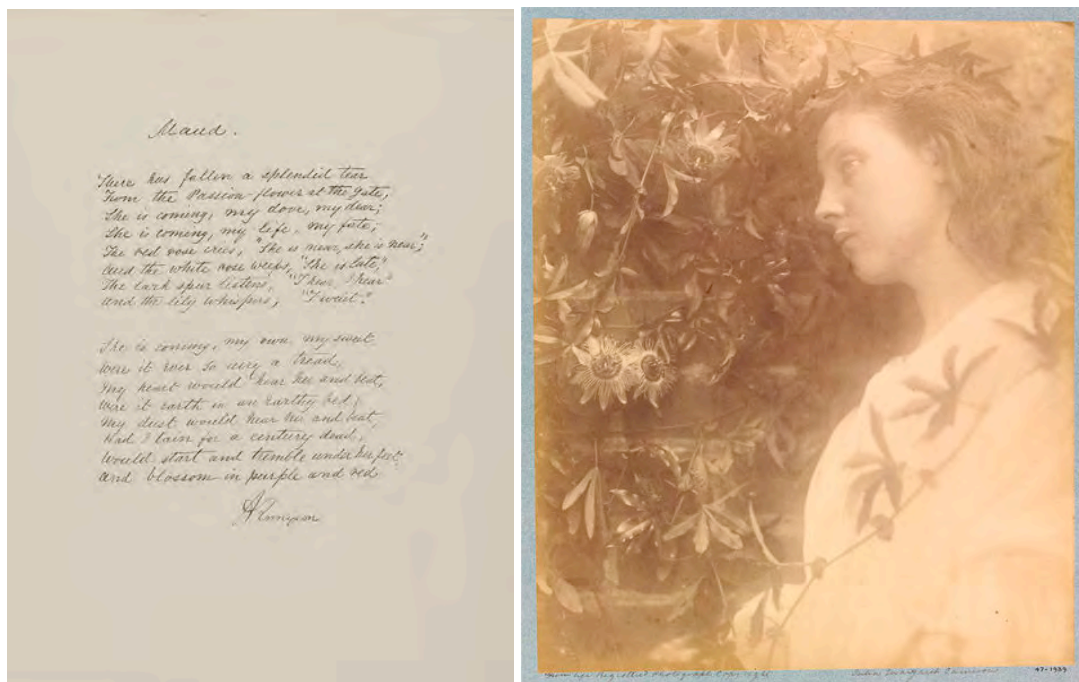 Maud.
There has fallen a splendid tear
From the Passion-flower at the gate;
She is coming, my dove, my dear;
She is coming, my life, my fate;
The red rose cries, "She is near, she is near";
And the white rose weeps, "She is late,"
The lark spur listens, "I hear, I hear"
And the lily whispers, "I wait."
She is coming, my own, my sweet
Were it ever so airy a tread,
My heart would hear her and beat,
Were it earth in an earthy bed;
My dust would hear her and beat,
Had I lain for a century dead,
Would start and tremble under her feet
And blossom in purple and red
A Tennyson
From Life Registered Photograph Copy right
Julia Margaret Cameron
47-1939